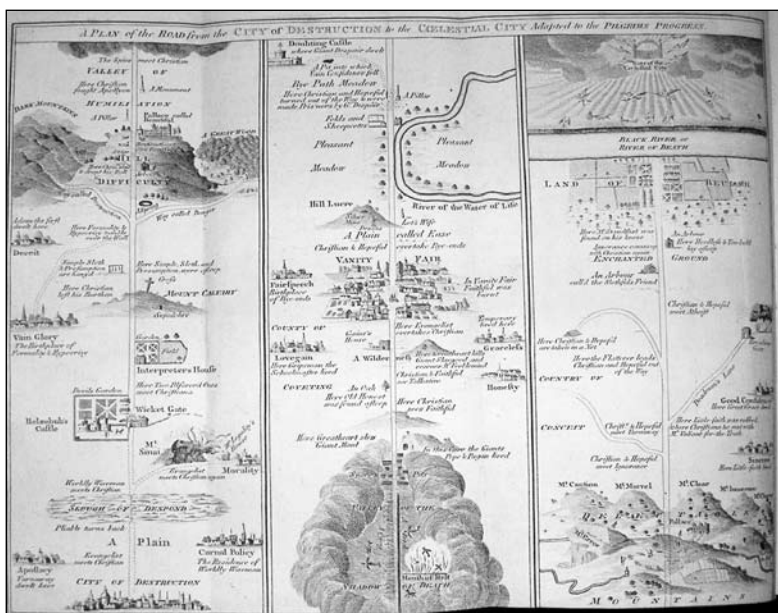 A PLAN of the ROAD from the CITY of DESTRUCTION to the CŒLESTIAL CITY Adapted to the PILGRIMS PROGRESS.
The Spies meet Christian
VALLEY OF
Here Christian
fought Apollyon
A Monument
HUMILIATION
DARK MOUNTAINS
A Pillar
Pallace called
Beautiful
A GREAT WOOD
HILL
DIFFICULTY
Way called Destruction
Way called Danger
Adam the first
dwelt here
Here Formality &
Hypocrisy
over the Wall
Deceit
Simple Sloth
& Presumption
are hang'd
Here Simple, Sloth, and
Presumption were asleep
Cross
Here Christian
left his Burthen
MOUNT CALVARY
Sepulchre
Vain Glory
The Birthplace of
Formality & Hypocrisy
Garden
Field
Interpreters House
Devils Garden
Here Two Ill-favord Ones
meet Christiana
Belzebub's
Castle
Wicket Gate
Mt.
Sinai
Morality
Evangelist
meets Christian again
Worldly Wiseman
meets Christian
SLOUGH OF DESPOND
Pliable turns back
A Plain
Evangelist
meets Christian
Carnal Policy
The Residence of
Worldly Wiseman
Apostacy
Turnaway
dwelt here
CITY OF DESTRUCTION
Doubting Castle
where Giant Despair dwelt
A Pit into which
Vain Confidence fell
Bye Path Meadow
Here Christian and Hopeful
turned out of the Way & were
made Prisoners by Gt. Despair
A Pillar
Folds and
Sheepcotes
Pleasant
Meadow
Pleasant
Meadow
River of the Water of Life
Hill Lucre
Silver
Mine
Lot's Wife
A Plain called Ease
Christian & Hopeful overtake Bye-ends
VANITY FAIR
Fairspeech
Birthplace
of Bye-ends
In Vanity Fair
Faithful was
burnt
COUNTY OF
Giant's
House
Here Evangelist
overtakes Christian
Temporary
lived here
Graceless
Lovegain
Here Gripeman the
Schoolmaster lived
A Wilderness
Here Greatheart kills
Giant Slaygood and
rescues Mr. Feeblemind
Christian & Faithful
see Talkative
COVETING
An Oak
Here Old Honest
was found asleep
Honesty
Here Christian
sees Faithful
Here Greatheart slew
Giant Maul
In this Cave the Giants
Pope & Pagan lived
VALLEY OF THE
SHADOW OF DEATH
Mouth of Hell
Gate of the
Cœlestial City
BLACK RIVER or
RIVER OF DEATH
LAND OF BEULAH
Here Mr. Standfast was
found on his knees
Ignorance coming
with Christian again
An Arbour
Here Heedless & Too-bold
lay asleep
ENCHANTED GROUND
An Arbour
call'd the Slothfuls Friend
Christian & Hopeful
meet Atheist
Here Christian & Hopeful
are taken in a Net
Here the Flatterer leads
Christian and Hopeful out
of the Way
COUNTRY OF
Deadmans Lane
Good Confidence
Here Great Grace lived
CONCEIT
Christn. & Hopeful
meet Turnaway
Here Little-faith was robbed
Christian & Hopeful
meet Ignorance
Sincere
Here Little-faith lived
Mt. Caution
Mt. Marvel
Mt. Clear
Mt. Innocence
Mt. Error
Pallace
MOUNTAINS